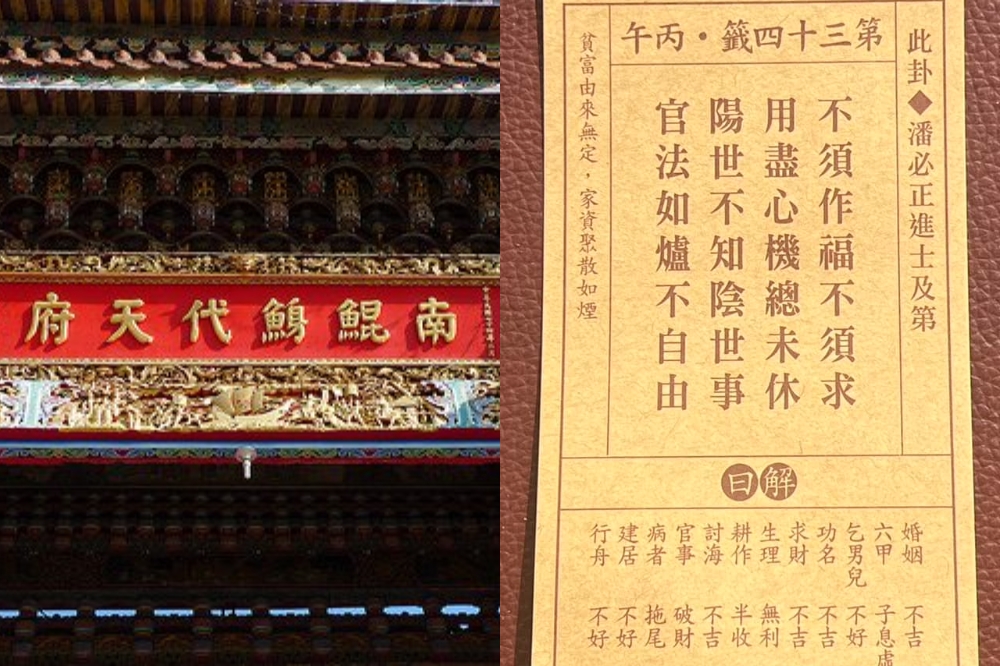 南鯤鯓代天府
第三十四籤・丙午
此卦◆潘必正進士及第
不須作福不須求
用盡心機總未休
陽世不知陰世事
官法如爐不自由
貧富由來無定，家資聚散如煙
解曰
婚姻 不吉
六甲 子息虛
乞男兒 不好
功名 不吉
求財 不吉
生理 無利
耕作 半收
討海 不吉
官事 破財
病者 拖尾
建居 不好
行舟 不好